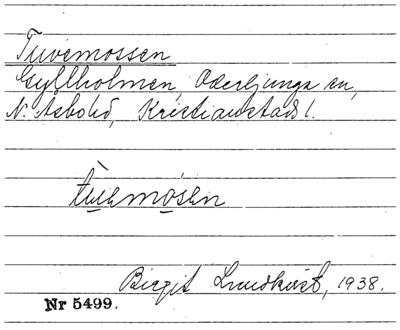 Tuvemossen
Gyllholmen, Oderljunga sn,
N. Åsbo hd, Kristianstads l.
tuvemosen
Birgit Lundkvist, 1938.
Nr 5499.